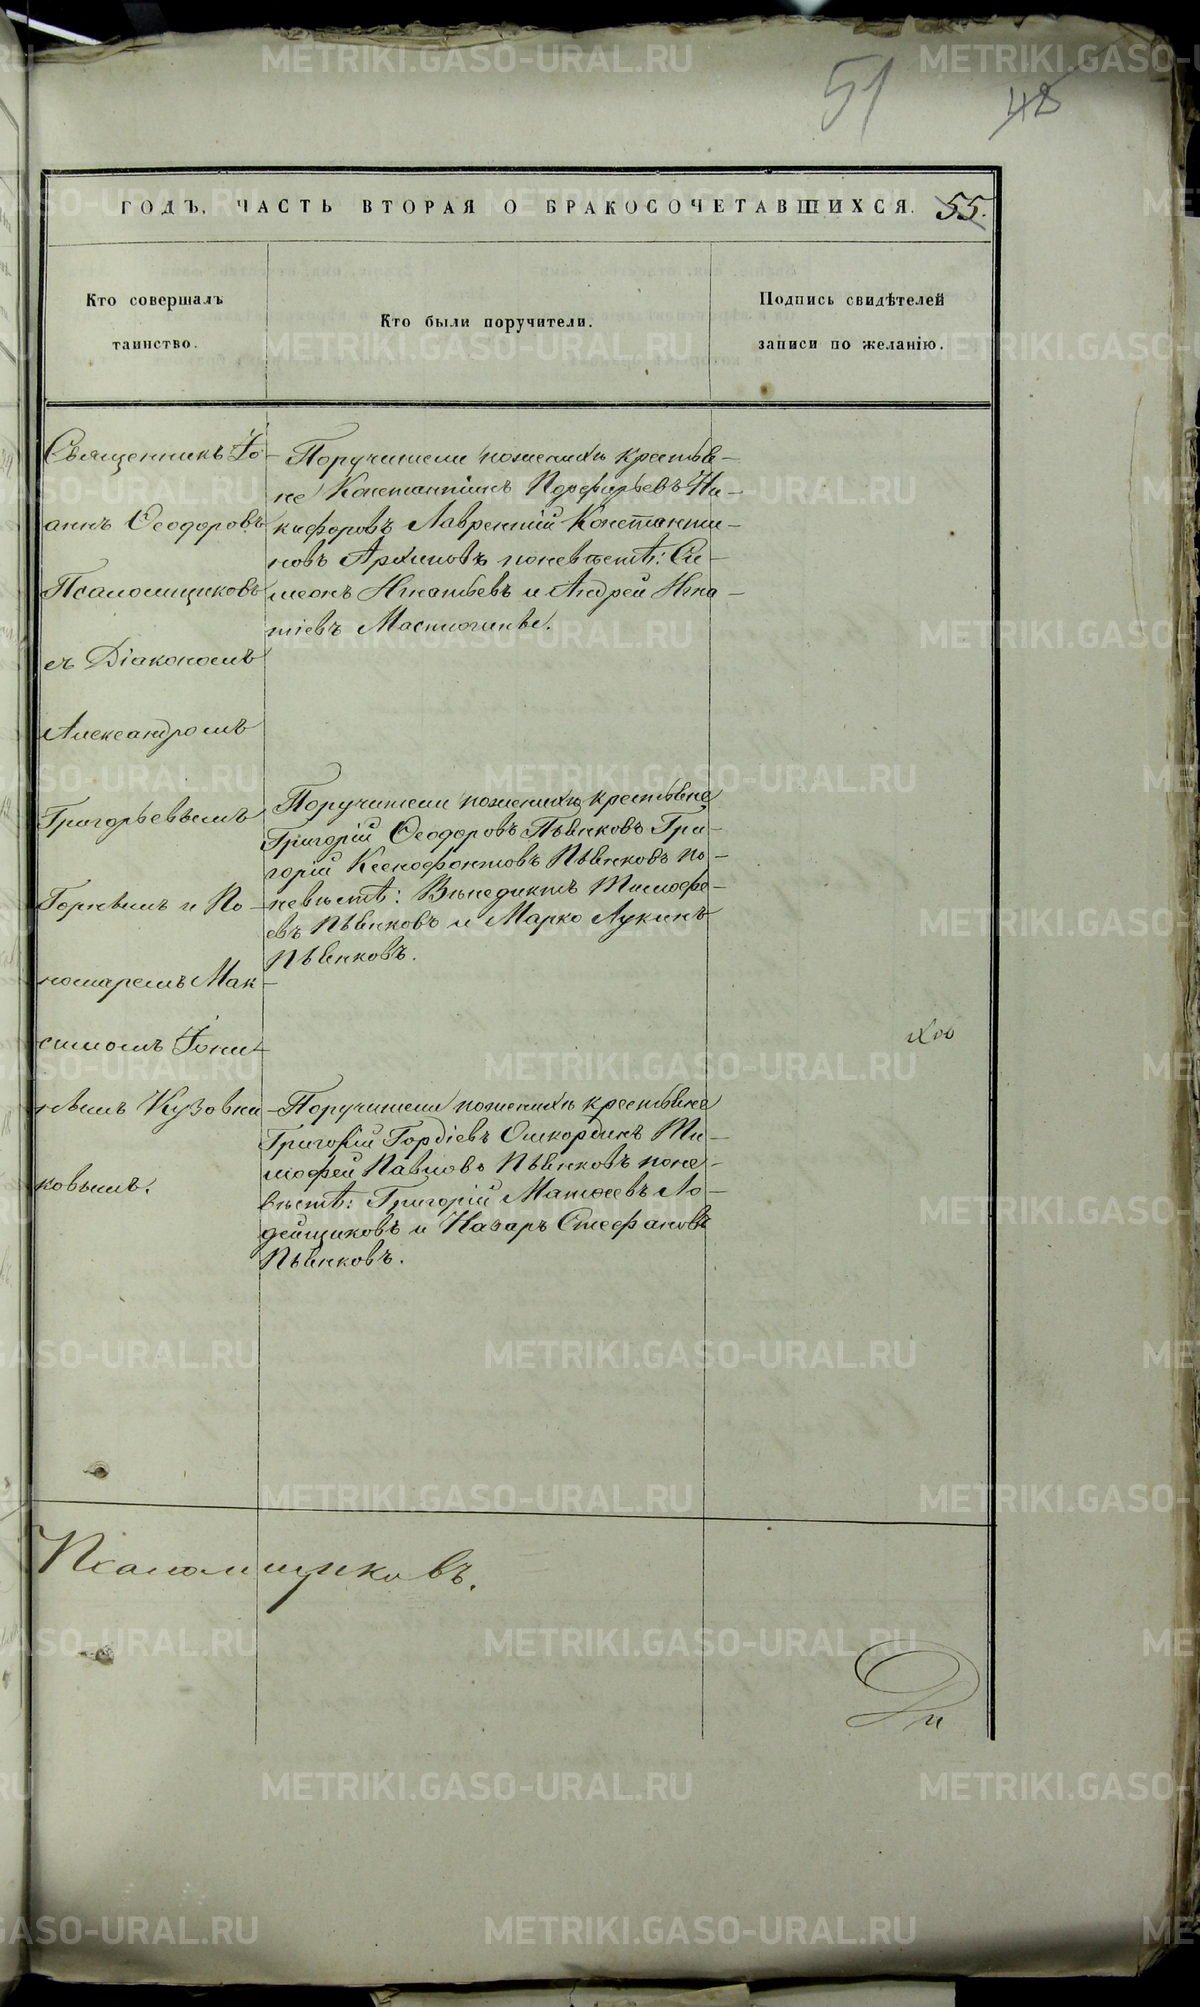 51
48
ГОДЪ, ЧАСТЬ ВТОРАЯ О БРАКОСОЧЕТАВШИХСЯ. 55.
Кто совершалъ
таинство.
Кто были поручители.
Подпись свидѣтелей
записи по желанію.
Священникъ Іо-
аннъ Ѳеодоровъ
Псаломщиковъ
съ Діакономъ
Александромъ
Григорьевымъ
Горнымъ и По-
номаремъ Мак-
симомъ
Кузовни
ковымъ.
Поручители по женихѣ крестья-
не Константинъ Порфирьевъ Ни-
кифоровъ Лаврентій Константи-
новъ Архиповъ по невѣстѣ: Си-
меонъ Игнатьевъ и Андрей Игна-
тіевъ Маслюгины.
Поручители по женихѣ крестьяне
Григорій Ѳеодоровъ Пьянковъ Гри-
горій Ксенофонтовъ Пьянковъ по
невѣстѣ: Венедиктъ Тимофе-
евъ Пьянковъ и Марко Лукинъ
Пьянковъ.
Поручители по женихѣ крестьяне
Григорій Гордіевъ Ошкординъ Ти-
мофей Павловъ Пьянковъ по не-
вѣстѣ: Григорій Матѳеевъ Ло-
дейщиковъ и Назаръ Стефановъ
Пьянковъ.
Псаломщиковъ.
METRIKI.GASO-URAL.RU